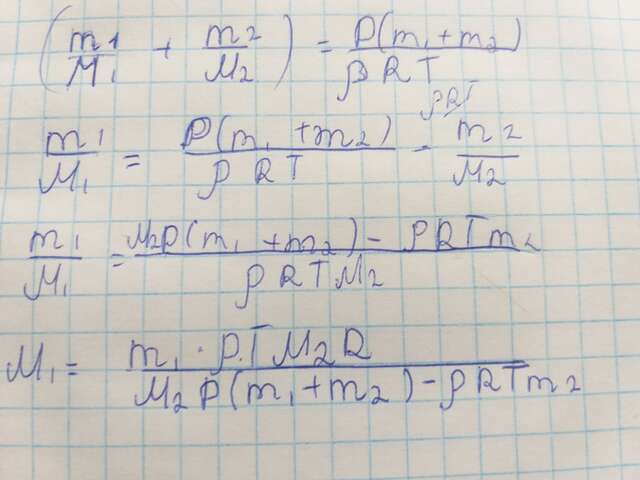 (m1/M1 + m2/M2) = P(m1+m2)/ρRT
m1/M1 = P(m1+m2)/ρRT - m2/M2 ρRT
m1/M1 = M2P(m1+m2) - ρRTm2/ρRTM2
M1 = m1·ρ.TM2R/M2P(m1+m2)-ρRTm2